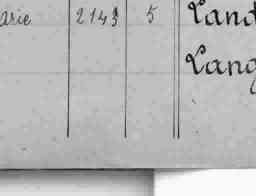 arie 2143 5 Land
Lang